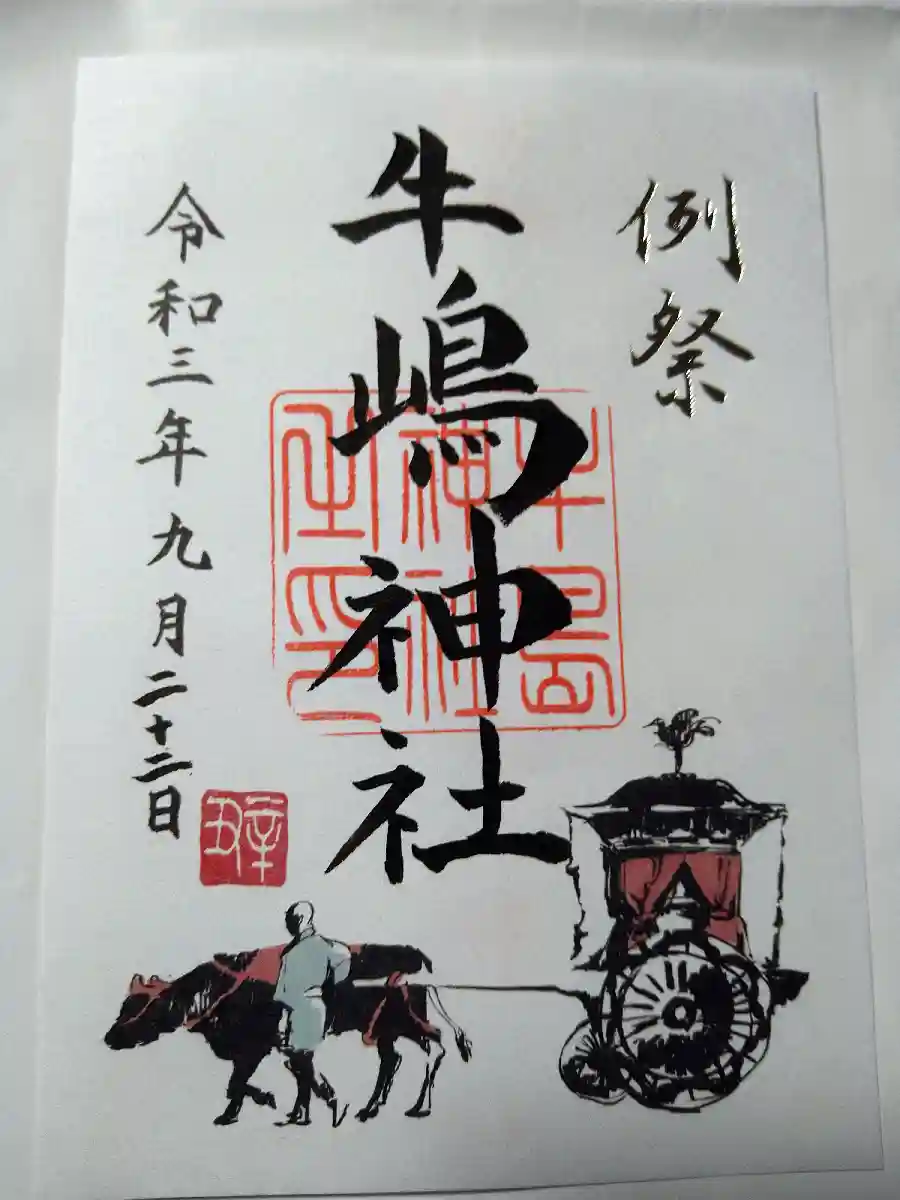 例祭
牛嶋神社
牛島
神社
之印
令和三年九月二十二日